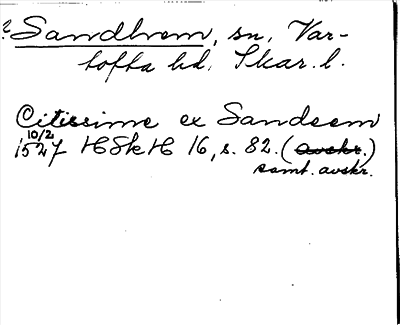 ? Sandhem, sn, Var-
tofta hd. Skar. l.
Citissime ex Sandeem
10/2
1527 HSkH 16, s. 82. (avskr.)
samt. avskr.